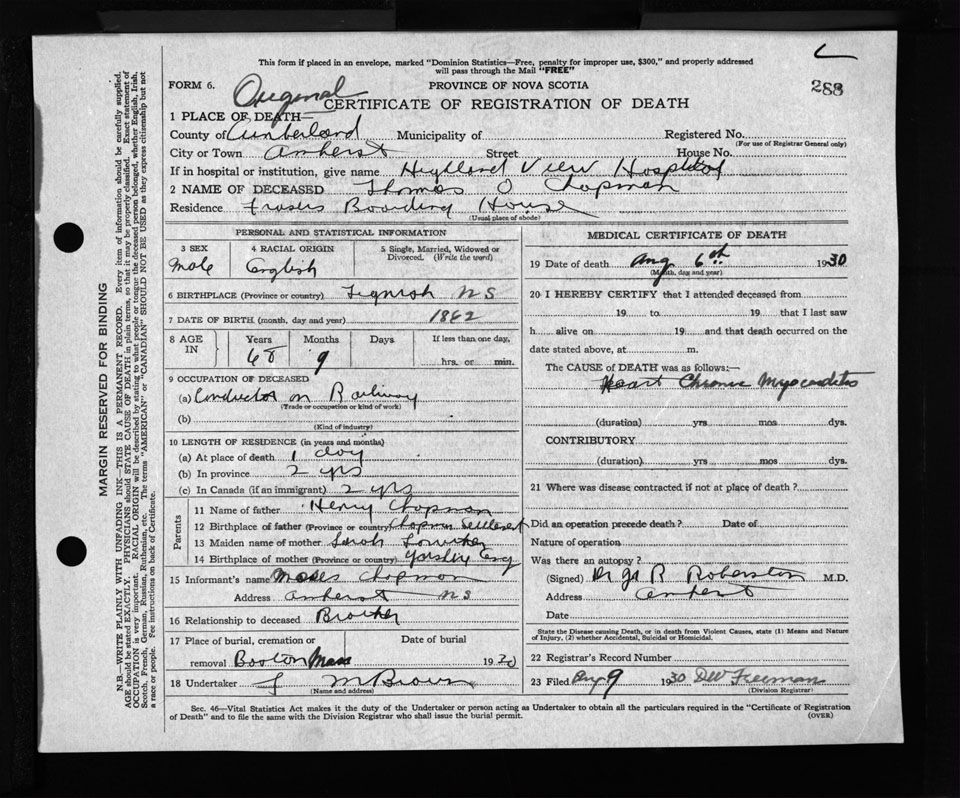 This form if placed in an envelope, marked "Dominion Statistics—Free, penalty for improper use, $300," and properly addressed
will pass through the Mail "FREE"
288
FORM 6. Original PROVINCE OF NOVA SCOTIA
CERTIFICATE OF REGISTRATION OF DEATH
1 PLACE OF DEATH—
County of Cumberland Municipality of Registered No.
(For use of Registrar General only)
City or Town Amherst Street House No.
If in hospital or institution, give name Highland View Hospital
2 NAME OF DECEASED Thomas O Chapman
Residence Frasers Boarding House
(Usual place of abode)
PERSONAL AND STATISTICAL INFORMATION
3 SEX 4 RACIAL ORIGIN 5 Single, Married, Widowed or Divorced. (Write the word)
Male English
6 BIRTHPLACE (Province or country) Tignish NS
7 DATE OF BIRTH (month, day and year) 1862
8 AGE IN Years Months Days If less than one day,
68 9 hrs. or min.
9 OCCUPATION OF DECEASED
(a) Conductor on Railway
(Trade or occupation or kind of work)
(b)
(Kind of industry)
10 LENGTH OF RESIDENCE (in years and months)
(a) At place of death 1 day
(b) In province 2 yrs
(c) In Canada (if an immigrant) 2 yrs
Parents
11 Name of father Henry Chapman
12 Birthplace of father (Province or country) Chapman Settlement
13 Maiden name of mother Sarah
14 Birthplace of mother (Province or country) Yorshire Eng
15 Informant's name Moses Chapman
Address Amherst NS
16 Relationship to deceased Brother
17 Place of burial, cremation or Date of burial
removal Boston Mass 19
18 Undertaker J M Brown
(Name and address)
MEDICAL CERTIFICATE OF DEATH
19 Date of death Aug 6th 1930
(Month, day and year)
20 I HEREBY CERTIFY that I attended deceased from
19 to 19 that I last saw
h alive on 19 and that death occurred on
date stated above, at m.
The CAUSE of DEATH was as follows:—
Heart Chronic Myocarditis
(duration) yrs mos dys.
CONTRIBUTORY
(duration) yrs mos dys.
21 Where was disease contracted if not at place of death?
Did an operation precede death? Date of
Nature of operation
Was there an autopsy?
(Signed) Dr R Roberston M.D.
Address Amherst
Date
State the Disease causing Death, or in death from Violent Causes, state (1) Means and Nature
of Injury, (2) whether Accidental, Suicidal or Homicidal.
22 Registrar's Record Number
23 Filed Aug 9 1930 DW Freeman
(Division Registrar)
Sec. 46—Vital Statistics Act makes it the duty of the Undertaker or person acting as Undertaker to obtain all the particulars required in the "Certificate of Registration
of Death" and to file the same with the Division Registrar who shall issue the burial permit. (OVER)
MARGIN RESERVED FOR BINDING
N.B.—WRITE PLAINLY WITH UNFADING INK—THIS IS A PERMANENT RECORD. Every item of information should be carefully supplied.
AGE should be stated EXACTLY. PHYSICIANS should STATE CAUSE OF DEATH in plain terms, so that it may be properly classified. Exact statement of
OCCUPATION is very important. RACIAL ORIGIN will be described by stating to what people or tongue the deceased person belonged, whether English, Irish,
Scotch, French, German, Russian, Ruthenian, etc. The terms "AMERICAN" or "CANADIAN" SHOULD NOT BE USED as they express citizenship but not
a race or people. See instructions on back of Certificate.